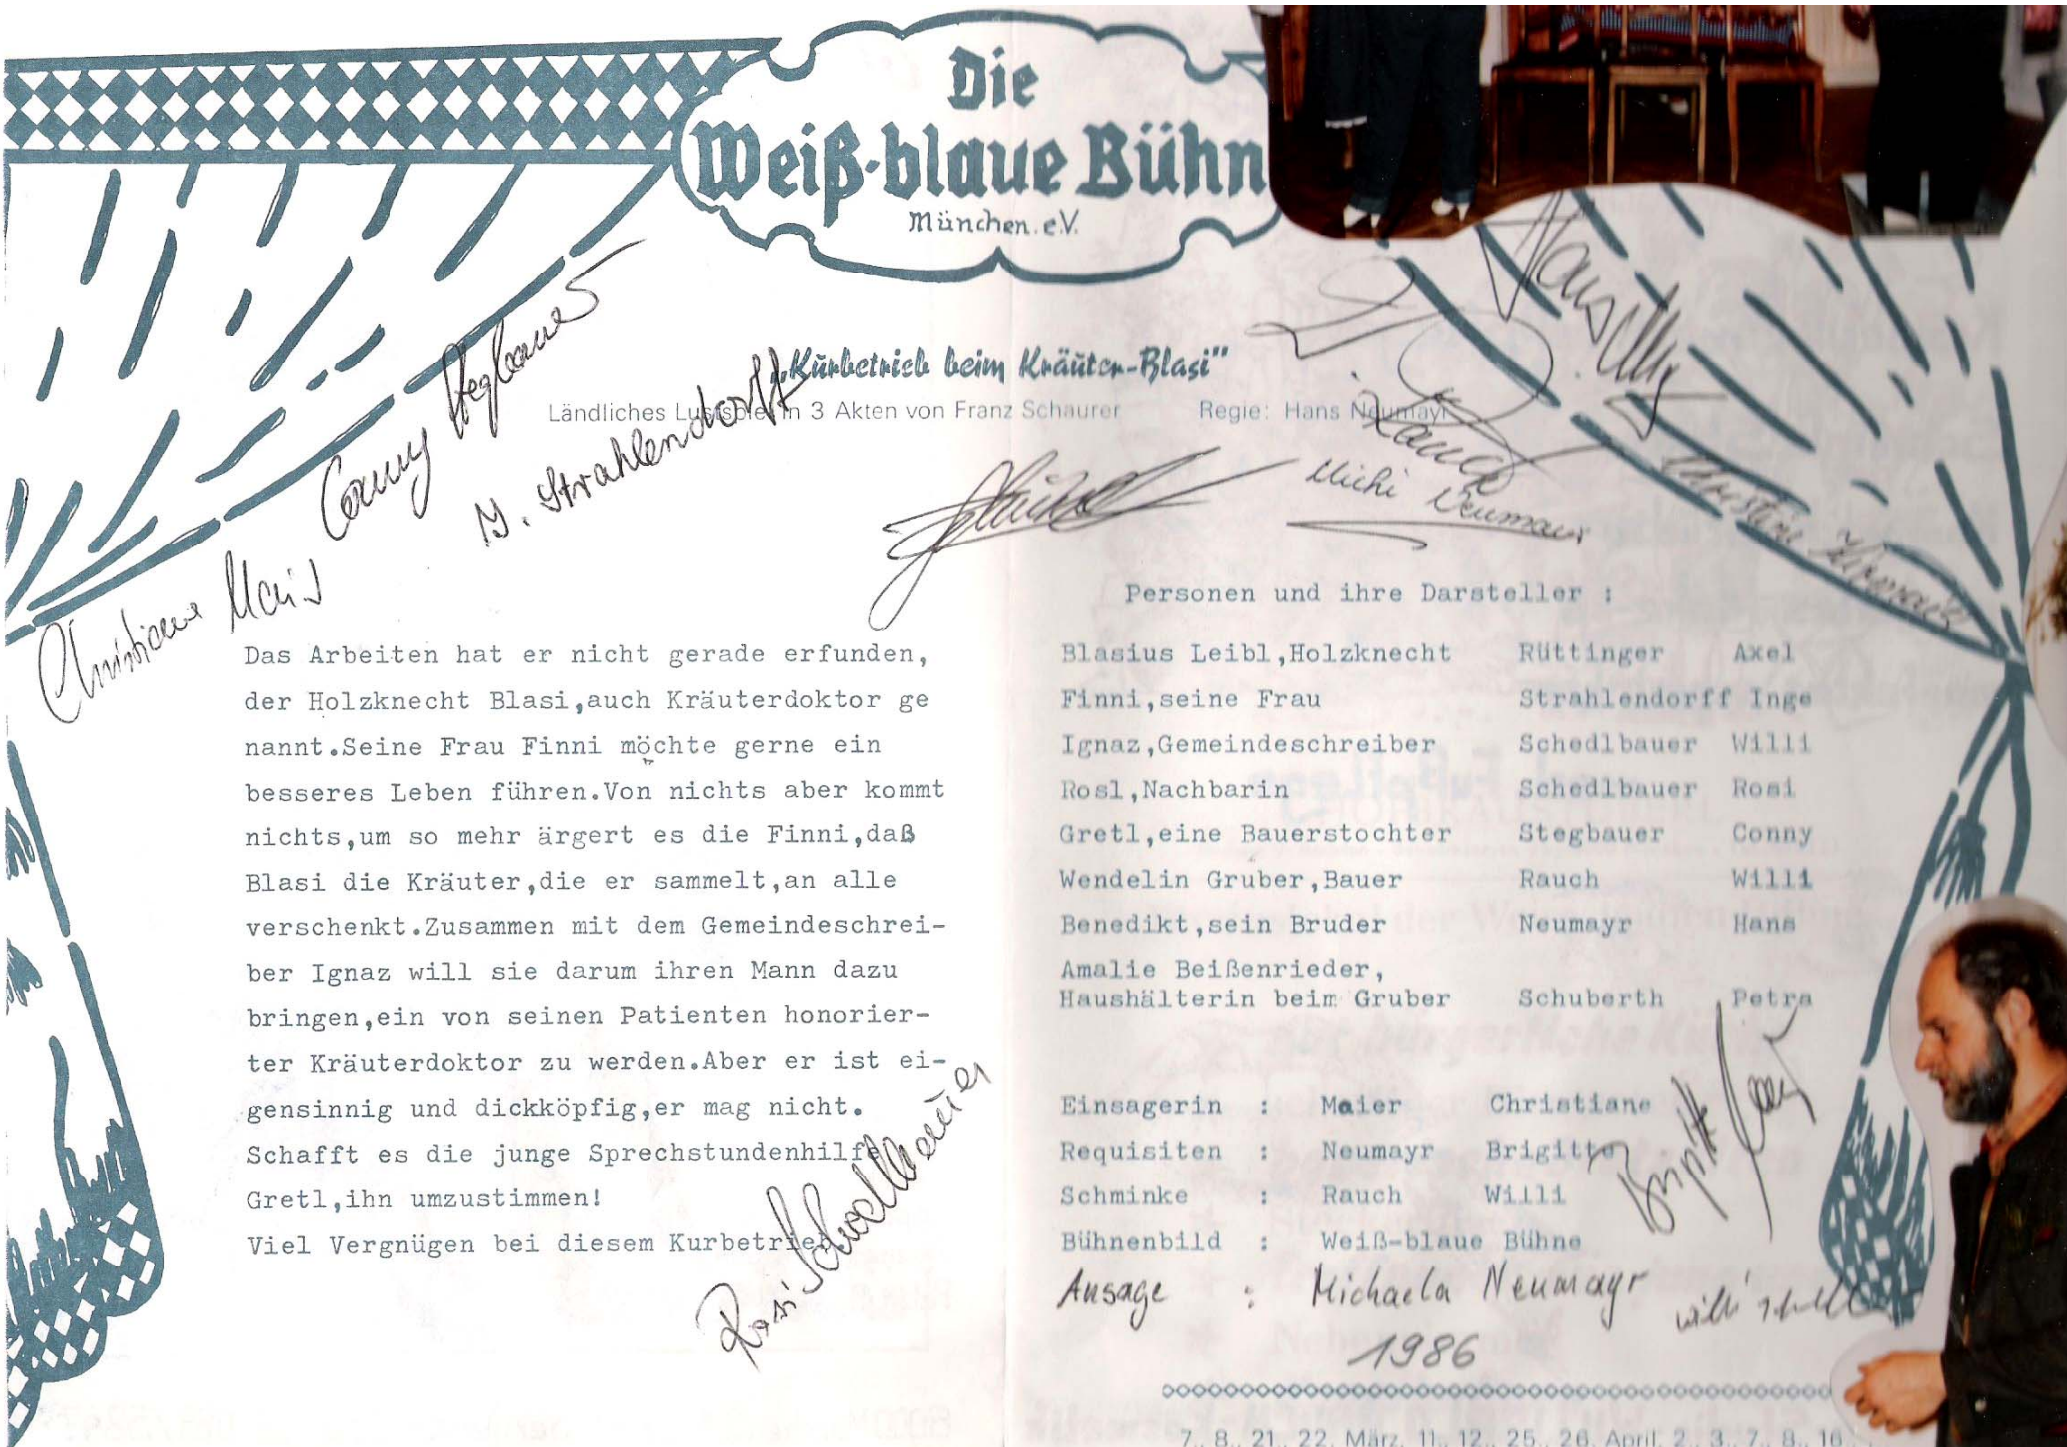 Die
Weiß-blaue Bühn
München. e.V.
„Kurbetrieb beim Kräuter-Blasi"
Ländliches Lustspiel in 3 Akten von Franz Schaurer Regie: Hans Neumayr
Conny Stegbauer
I. Strahlendorff
Rauch
Michi Neumayr
Christiane Maier
Das Arbeiten hat er nicht gerade erfunden,
der Holzknecht Blasi,auch Kräuterdoktor ge
nannt.Seine Frau Finni möchte gerne ein
besseres Leben führen.Von nichts aber kommt
nichts,um so mehr ärgert es die Finni,daß
Blasi die Kräuter,die er sammelt,an alle
verschenkt.Zusammen mit dem Gemeindeschrei-
ber Ignaz will sie darum ihren Mann dazu
bringen,ein von seinen Patienten honorier-
ter Kräuterdoktor zu werden.Aber er ist ei-
gensinnig und dickköpfig,er mag nicht.
Schafft es die junge Sprechstundenhilfe
Gretl,ihn umzustimmen!
Viel Vergnügen bei diesem Kurbetrieb
Rosi Schedlbauer
Personen und ihre Darsteller :
Blasius Leibl,Holzknecht Rüttinger Axel
Finni,seine Frau Strahlendorff Inge
Ignaz,Gemeindeschreiber Schedlbauer Willi
Rosl,Nachbarin Schedlbauer Rosi
Gretl,eine Bauerstochter Stegbauer Conny
Wendelin Gruber,Bauer Rauch Willi
Benedikt,sein Bruder Neumayr Hans
Amalie Beißenrieder,
Haushälterin beim Gruber Schuberth Petra
Einsagerin : Maier Christiane
Requisiten : Neumayr Brigitte
Schminke : Rauch Willi
Bühnenbild : Weiß-blaue Bühne
Ansage : Michaela Neumayr
1986
7., 8., 21., 22. März, 11., 12., 25., 26. April, 2., 3., 7., 8., 16.